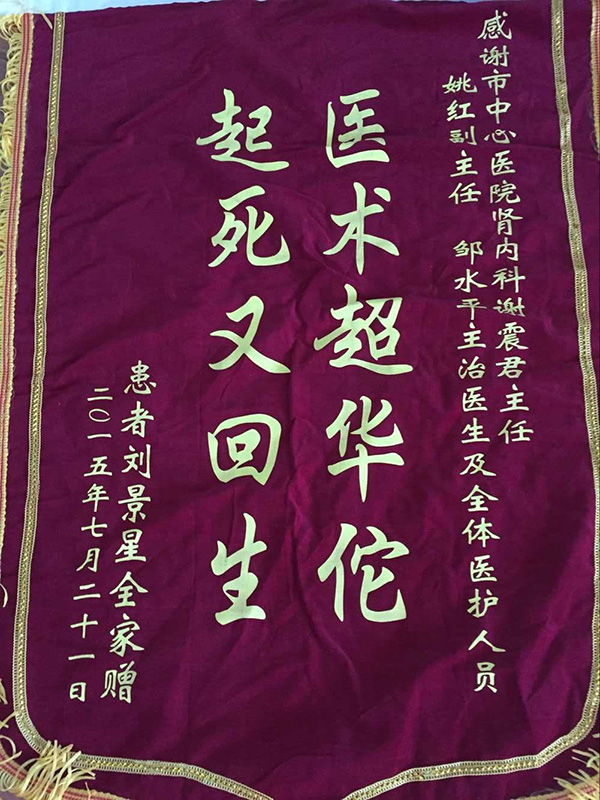 感谢市中心医院肾内科谢震君主任
姚红副主任 邹水平主治医生及全体医护人员
医术超华佗
起死又回生
患者刘景星全家赠
二〇一五年七月二十一日